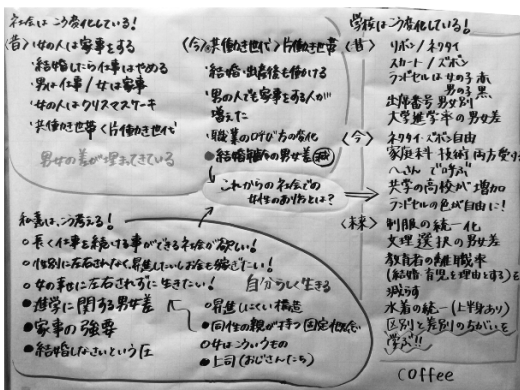 社会はこう変化している!
〈昔〉・女の人は家事をする
・結婚したら仕事はやめる
・男は仕事/女は家事
・女の人はクリスマスケーキ
・共働き世帯<片働き世代
男女の差が埋まってきている
〈今〉・共働き世代>片働き世帯
・結婚・出産後も働ける
・男の人でも家事をする人が
増えた
・職業の呼び方の変化
●結婚 の男女差 減
これからの社会での
女性のあり方とは?
私達はこう考える!
○長く仕事を続ける事ができる社会が欲しい!
○性別に左右されなく、昇進したいしお金も稼ぎたい!
○女の事もに左右されずに生きたい! 自分らしく生きる
●進学に関する男女差
●家事の強要
●結婚しなさいという圧
○昇進しにくい構造
●同性の親が持つ固定概念
○女はこういうもの
●上司(おじさんたち)
学校はこう変化している!
〈昔〉 リボン/ネクタイ
スカート/ズボン
ランドセルは女の子 赤
男の子 黒
出席番号 男女別
大学進学率の男女差
〈今〉 ネクタイ・ズボン自由
家庭科 技術 両方受ける
〜さん で呼ぶ
共学の高校が増加
ランドセルの色が自由に!
〈未来〉 制服の統一化
文理選択の男女差
教育者の離職率
(結婚・育児を理由とする)を
減らす
水着の統一(上半身あり)
区別と差別のちがいを
学ぶ!!
coffee